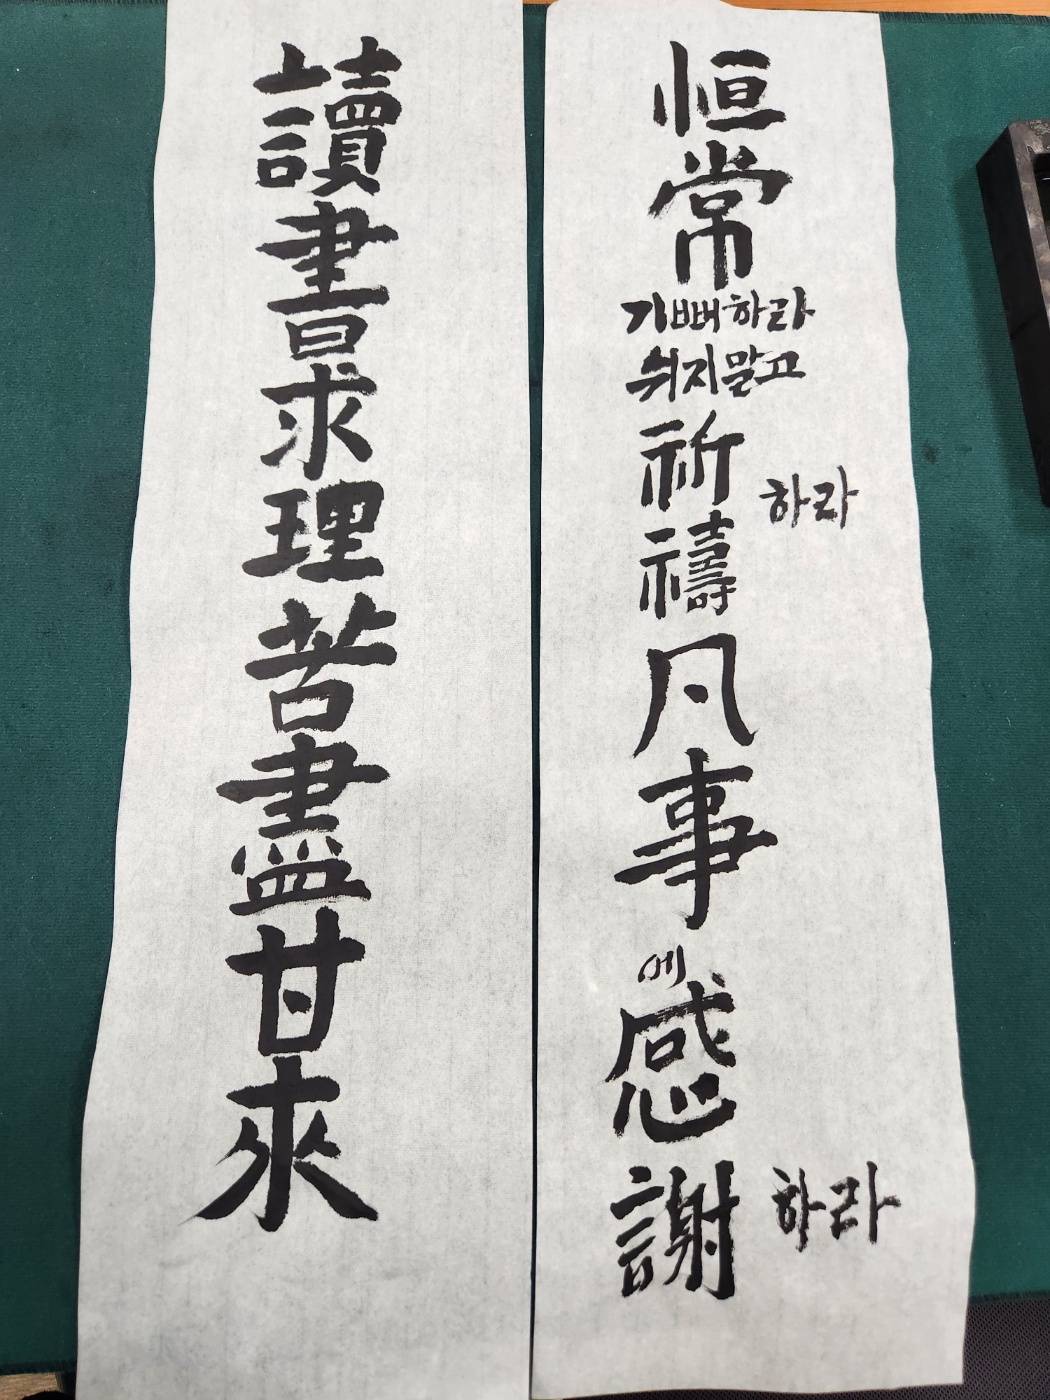 恒常
기뻐하라
쉬지말고
祈禱
하라
凡事
에
感謝
하라
讀書求理苦盡甘來